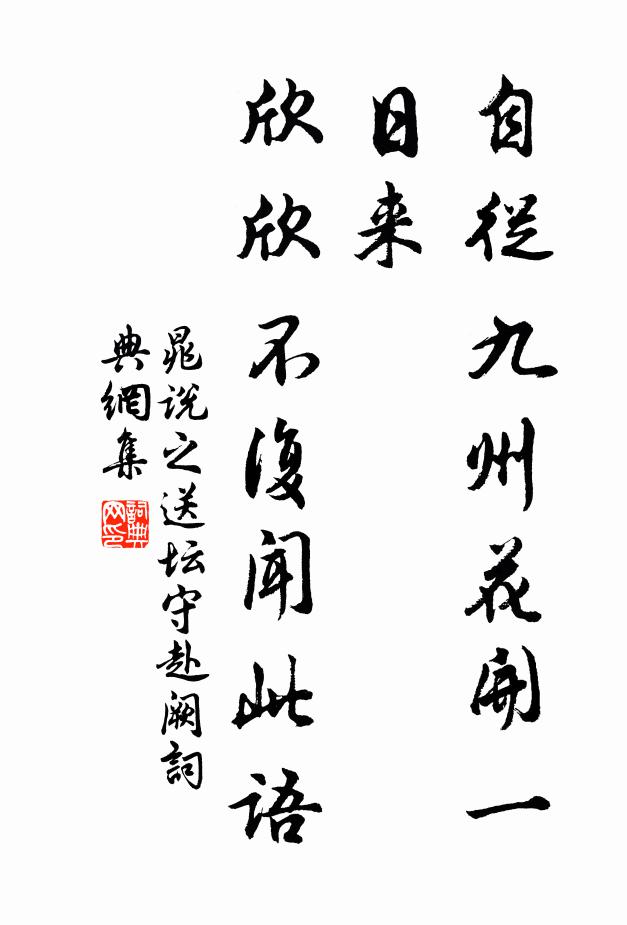 自從九州花開一
日来
欣欣不復聞此語
晁说之送坛守赴阙詞
典網集
詞典
网印